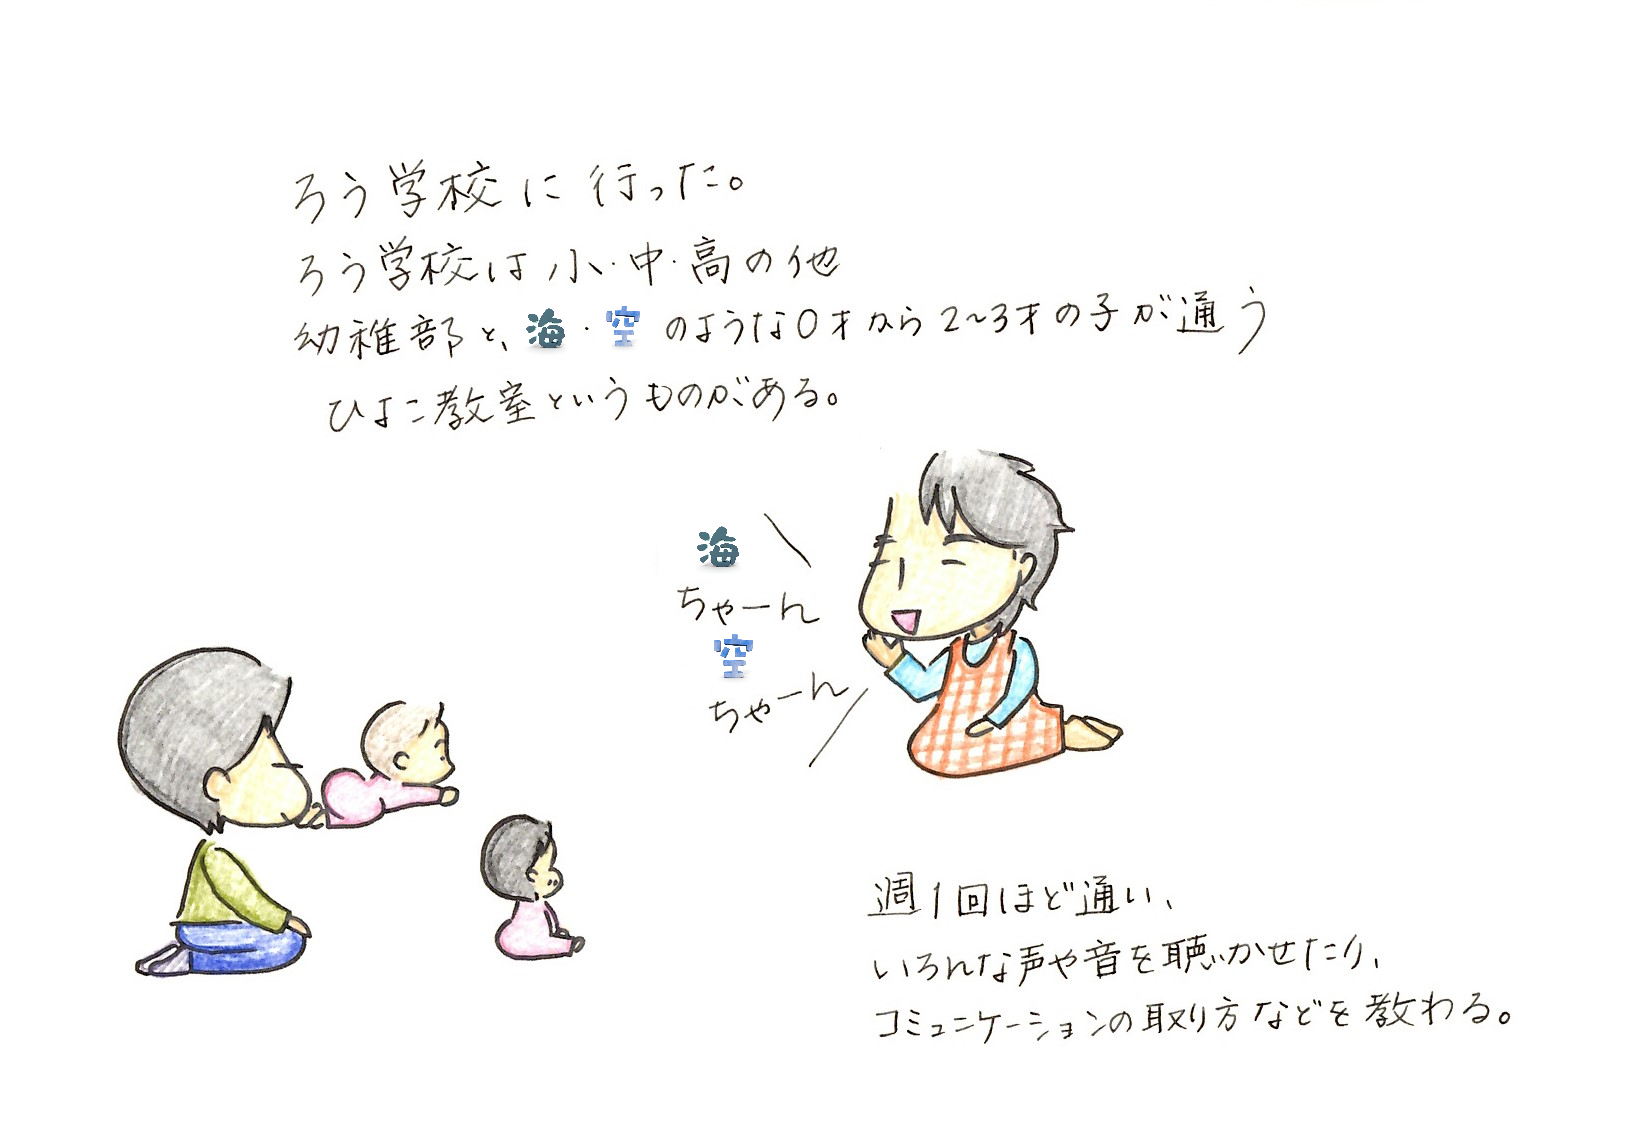 ろう学校に行った。
ろう学校は小・中・高の他
幼稚部と、海・空のような0才から2〜3才の子が通う
ひよこ教室というものがある。
海
ちゃーん
空
ちゃーん
週1回ほど通い、
いろんな声や音を聴かせたり、
コミュニケーションの取り方などを教わる。